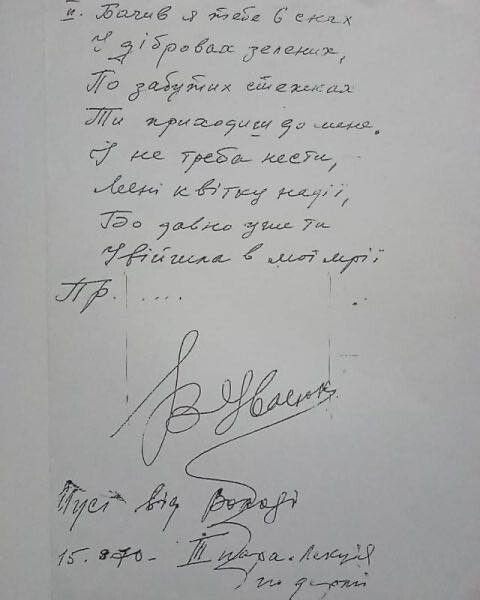 II. Бачив я тебе в снах
У дібровах зелених,
По забутих стежках
Ти приходиш до мене.
І не треба нести,
Мені квітку надії,
Бо давно уже ти
Увійшла в мої мрії
Пр. ....
В Івасюк
Пусі від Володі
15. 70. III пара. Лекція
по